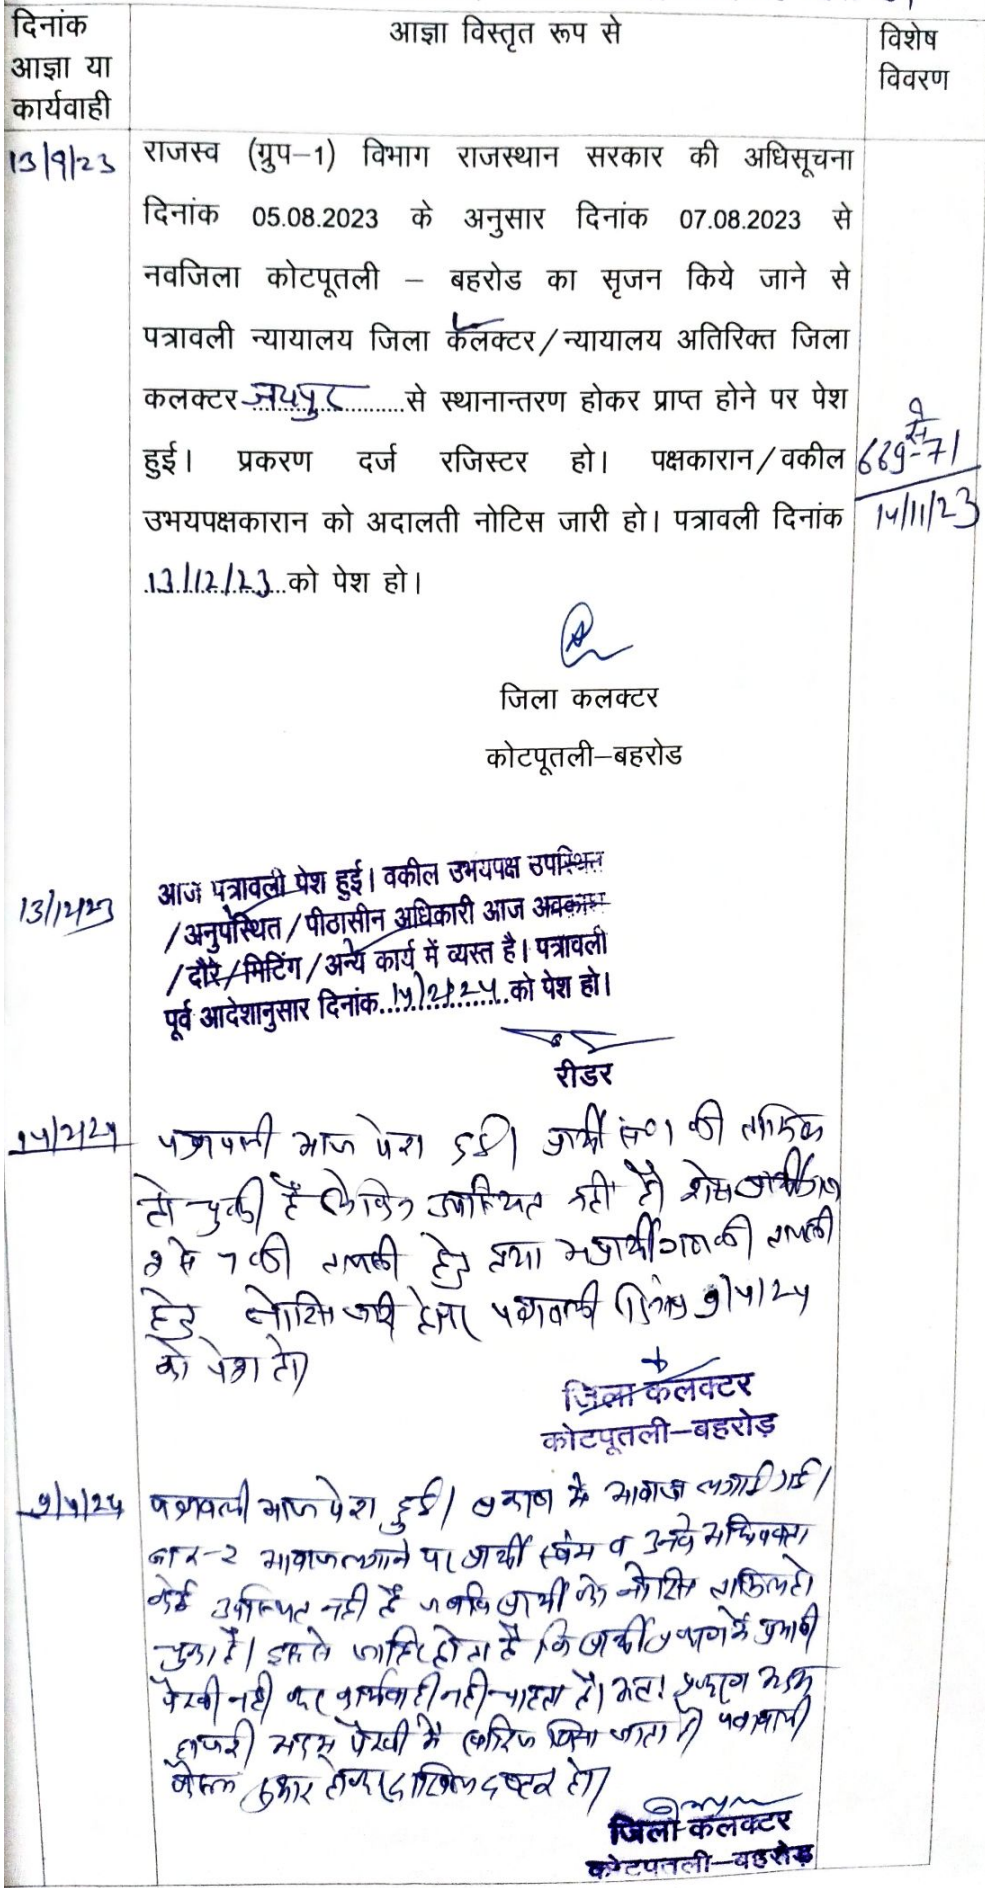 दिनांक
आज्ञा या
कार्यवाही
आज्ञा विस्तृत रूप से
विशेष
विवरण
13/9/23
राजस्व (ग्रुप–1) विभाग राजस्थान सरकार की अधिसूचना
दिनांक 05.08.2023 के अनुसार दिनांक 07.08.2023 से
नवजिला कोटपूतली – बहरोड का सृजन किये जाने से
पत्रावली न्यायालय जिला कलक्टर/न्यायालय अतिरिक्त जिला
कलक्टर जयपुर से स्थानान्तरण होकर प्राप्त होने पर पेश
हुई। प्रकरण दर्ज रजिस्टर हो। पक्षकारान/वकील
उभयपक्षकारान को अदालती नोटिस जारी हो। पत्रावली दिनांक
13/12/23 को पेश हो।
से
669-71
14/11/23
जिला कलक्टर
कोटपूतली–बहरोड
13/12/23
आज पत्रावली पेश हुई। वकील उभयपक्ष उपस्थित
/अनुपस्थित/पीठासीन अधिकारी आज अवकाश
/दौरे/मिटिंग/अन्य कार्य में व्यस्त है। पत्रावली
पूर्व आदेशानुसार दिनांक 14/2/24 को पेश हो।
रीडर
14/2/24
पत्रावली आज पेश हुई। प्रार्थी सं० 1 की तामिल
हो चुकी है लेकिन उपस्थित नहीं है। शेष प्रार्थीगण
2 से 7 की तामिली हेतु तथा अप्रार्थीगण की तामिली
हेतु नोटिस जारी होकर पत्रावली दिनांक 9/4/24
को पेश हो।
जिला कलक्टर
कोटपूतली–बहरोड़
9/4/24
पत्रावली आज पेश हुई। प्रकरण में आवाज लगाई गई।
बार-2 आवाज लगाने पर प्रार्थी स्वयं व उनके अधिवक्ता
कोई उपस्थित नहीं है जबकि प्रार्थी को नोटिस तामिल हो
चुका है। इससे जाहिर होता है कि प्रार्थी प्रकरण में प्रभावी
पैरवी नहीं कर कार्यवाही नहीं चाहता है। अतः प्रकरण अदम
हाजरी अदम पैरवी में खारिज किया जाता है। पत्रावली
फैसल शुमार होकर दाखिल दफ्तर हो।
जिला कलक्टर
कोटपूतली–बहरोड़